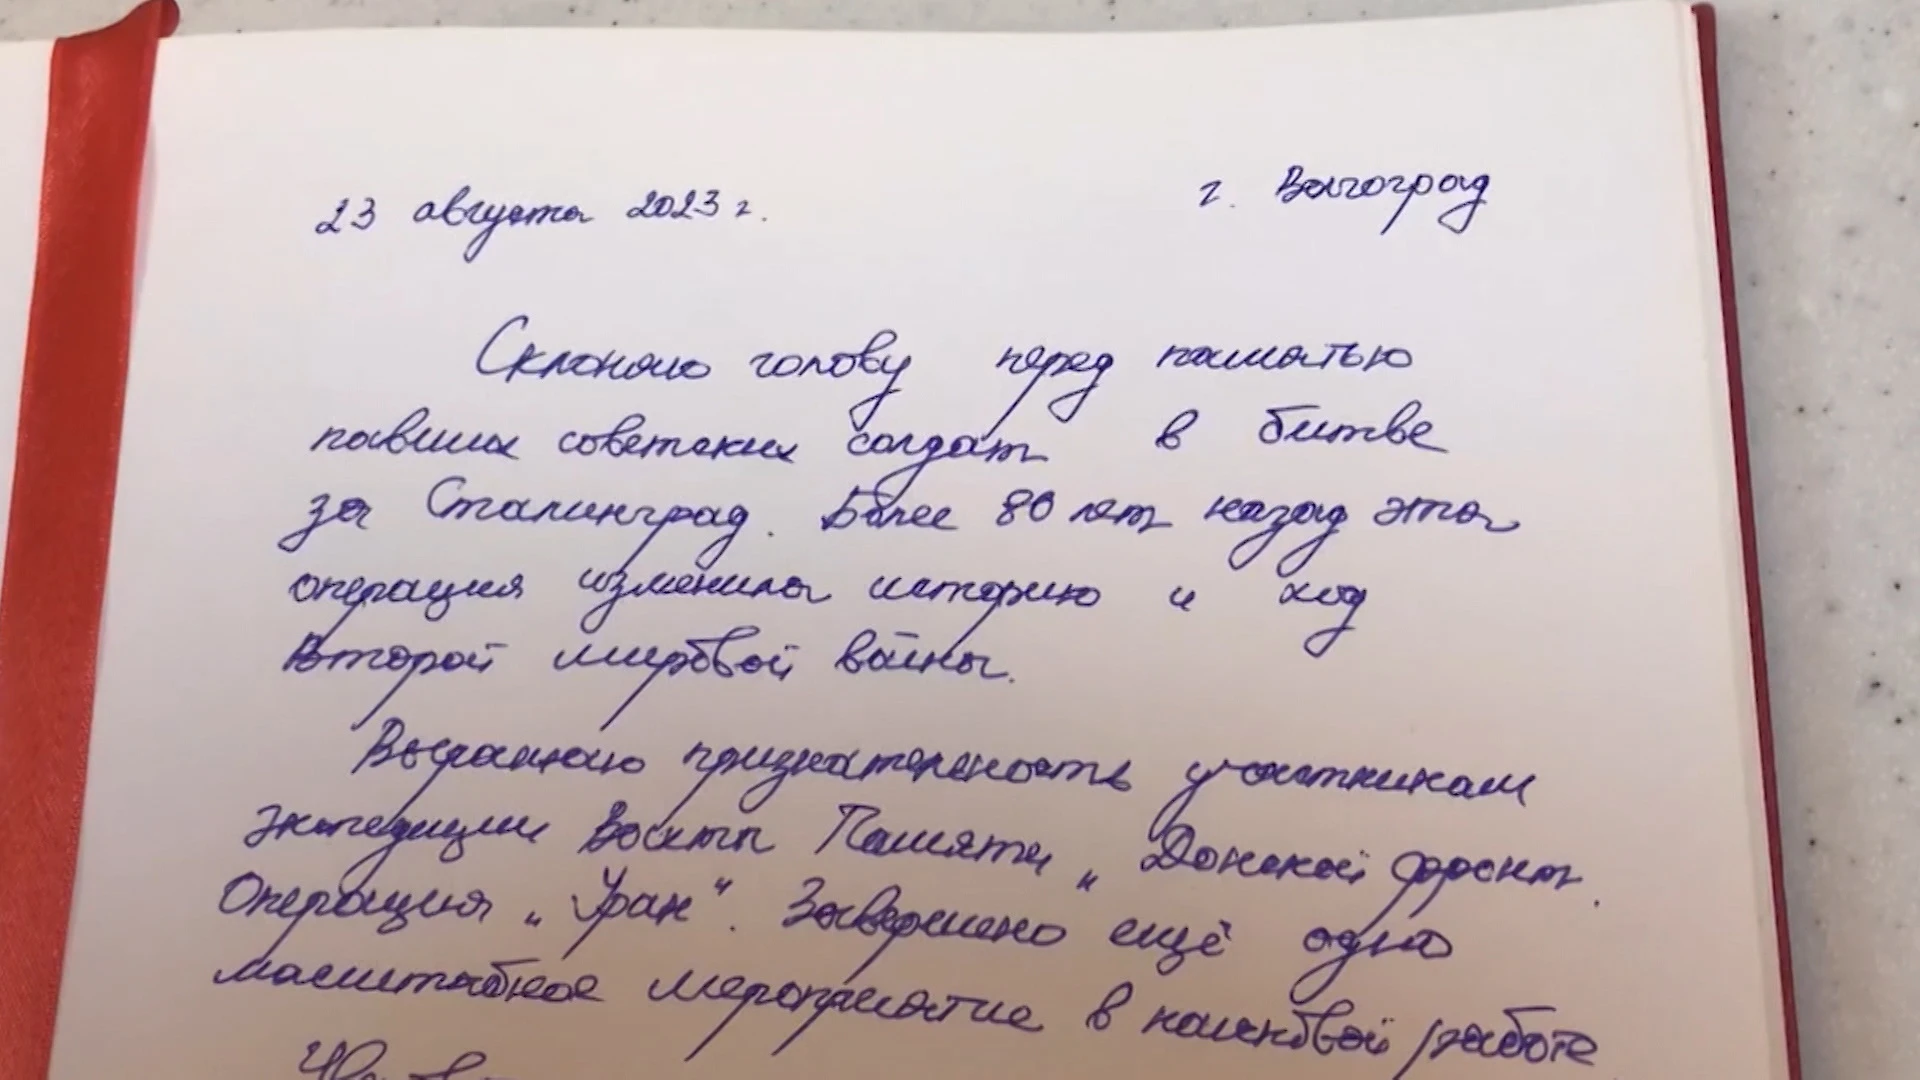 23 августа 2023 г.
г. Волгоград
Склоняю голову перед памятью
павших советских солдат в битве
за Сталинград. Более 80 лет назад эта
операция изменила историю и ход
Второй мировой войны.
Выражаю признательность участникам
экспедиции Вахты Памяти „Донской фронт.
Операция „Уран“. Завершено ещё одно
масштабное мероприятие в поисковой работе